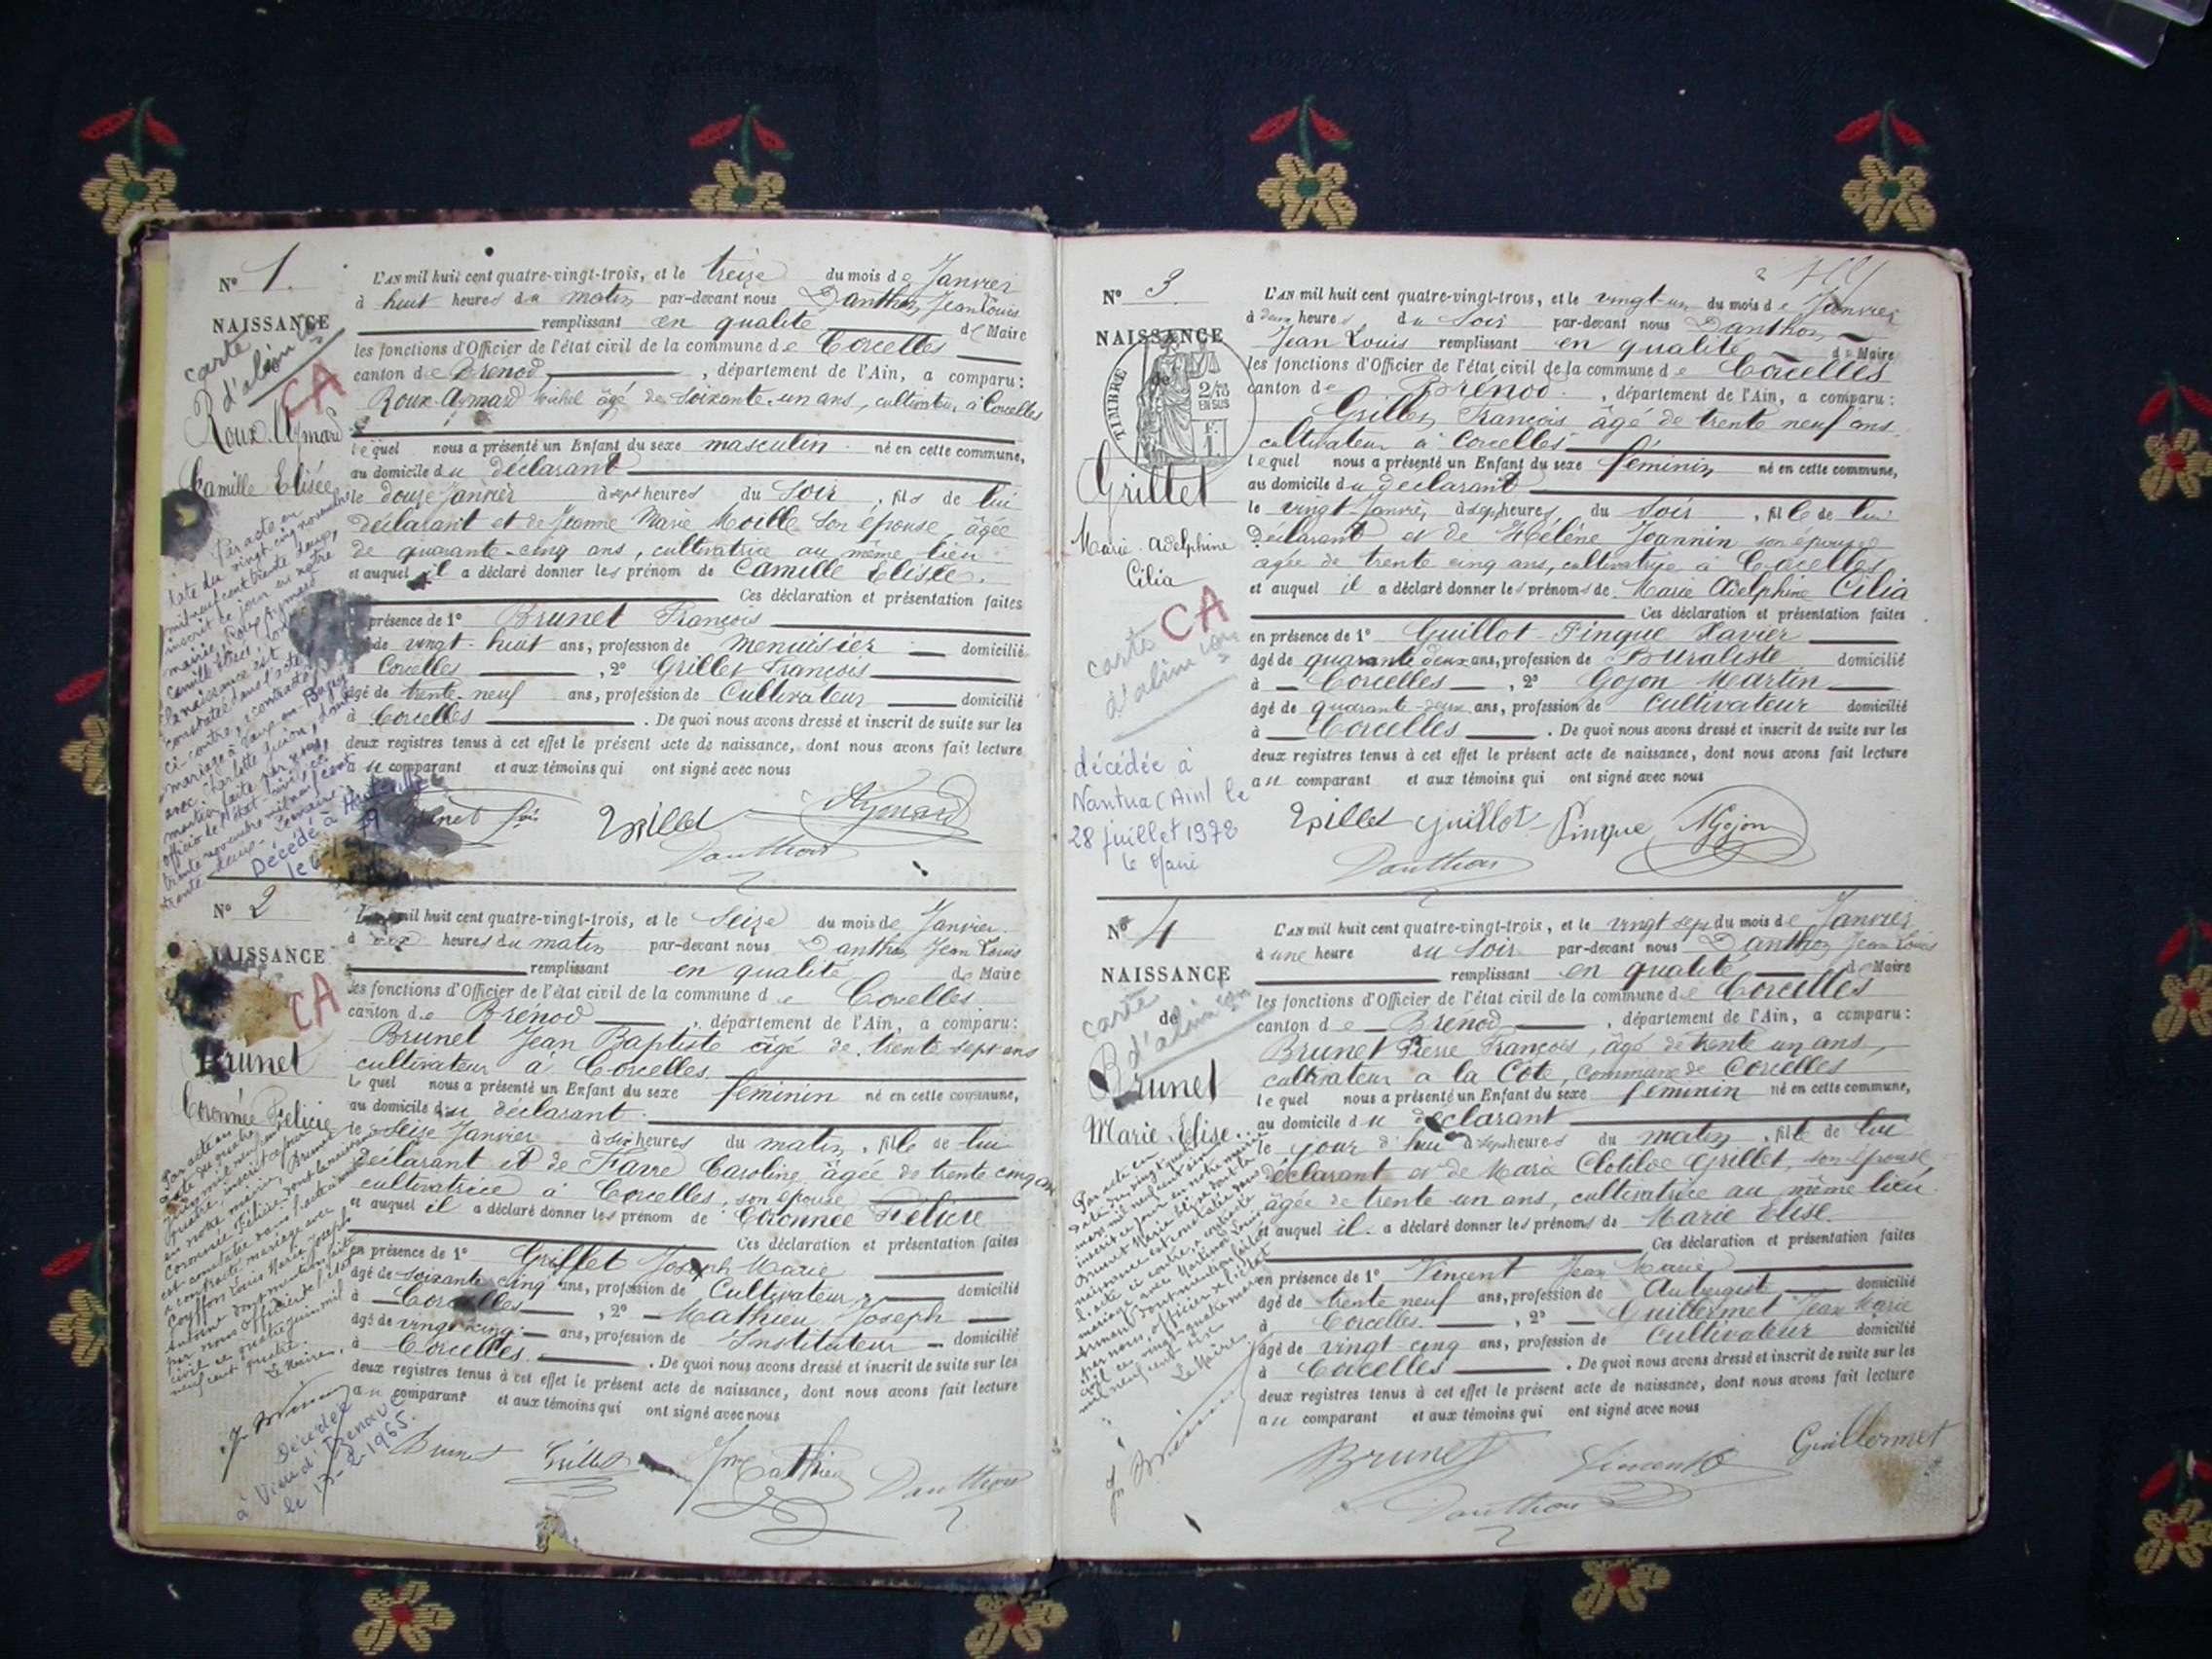 N° 1.
NAISSANCE
carte
d'alim ion
CA
Roux-Aymard
Camille Elisée
L'AN mil huit cent quatre-vingt-trois, et le treize du mois de Janvier
à huit heures du matin par-devant nous Danthon Jean Louis
remplissant en qualité de Maire
les fonctions d'Officier de l'état civil de la commune de Corcelles
canton de Brenod, département de l'Ain, a comparu :
Roux-Aymard Michel âgé de soixante-un ans, cultivateur à Corcelles
lequel nous a présenté un Enfant du sexe masculin né en cette commune,
au domicile du déclarant
le douze Janvier à sept heures du soir, fils de lui
déclarant et de Jeanne Marie Moille son épouse, âgée
de quarante-cinq ans, cultivatrice au même lieu
et auquel il a déclaré donner les prénom de Camille Elisée.
Ces déclaration et présentation faites
présence de 1° Brunet François
de vingt-huit ans, profession de menuisier domicilié
Corcelles, 2° Grillet François
âgé de trente-neuf ans, profession de Cultivateur domicilié
à Corcelles. De quoi nous avons dressé et inscrit de suite sur les
deux registres tenus à cet effet le présent acte de naissance, dont nous avons fait lecture
au comparant et aux témoins qui ont signé avec nous
Grillet Aymard
Danthon
Par acte en
date du vingt-cinq novembre
mil neuf cent trente deux,
inscrit ce jour en notre
mairie, Roux Aymard
Camille Elisée, dont
la naissance est
constatée dans l'acte
ci-contre, a contracté
mariage à
avec Charlotte dont
mention faite par nous,
officier de l'état civil ce
trente novembre mil neuf cent
trente-deux.
Le maire
Décédé à Hauteville
le 6
N° 2
NAISSANCE
CA
Brunet
Coronnée Félicie
mil huit cent quatre-vingt-trois, et le seize du mois de Janvier
à dix heures du matin par-devant nous Danthon Jean Louis
remplissant en qualité de Maire
les fonctions d'Officier de l'état civil de la commune de Corcelles
canton de Brenod, département de l'Ain, a comparu :
Brunet Jean Baptiste âgé de trente sept ans
cultivateur à Corcelles
le quel nous a présenté un Enfant du sexe féminin né en cette commune,
au domicile du déclarant
le seize Janvier à six heures du matin, fille de lui
déclarant et de Favre Caroline âgée de trente cinq ans
cultivatrice à Corcelles, son épouse
et auquel il a déclaré donner les prénom de Coronnée Félicie
Ces déclaration et présentation faites
en présence de 1° Grillet Joseph Marie
âgé de soixante cinq ans, profession de Cultivateur domicilié
à Corcelles, 2° Mathieu Joseph
âgé de vingt-cinq ans, profession de Instituteur domicilié
à Corcelles. De quoi nous avons dressé et inscrit de suite sur les
deux registres tenus à cet effet le présent acte de naissance, dont nous avons fait lecture
au comparant et aux témoins qui ont signé avec nous
Brunet Grillet Mathieu Danthon
Par acte en
date du quatre
juin mil neuf cent
quatre, inscrit ce jour
en notre mairie, Brunet
Coronnée Félicie, dont la naissance
est constatée dans l'acte ci-contre
a contracté mariage avec
Louis Marie Joseph
dont mention faite
par nous officier de l'état
civil ce quatre juin mil
neuf cent quatre
Le Maire,
Décédée
à Vieu d'Izenave
le 17-2-1965.
N° 3.
NAISSANCE
de
TIMBRE
2/10
EN SUS
Grillet
Marie Adelphine
Cilia
CA
carte
d'alim ion
décédée à
Nantua (Ain) le
28 juillet 1978
le Maire
2
L'AN mil huit cent quatre-vingt-trois, et le vingt-un du mois de Janvier
à deux heures du soir par-devant nous Danthon
Jean Louis remplissant en qualité de Maire
les fonctions d'Officier de l'état civil de la commune de Corcelles
canton de Brénod, département de l'Ain, a comparu :
Grillet François âgé de trente neuf ans,
cultivateur à Corcelles
lequel nous a présenté un Enfant du sexe féminin né en cette commune,
au domicile du déclarant
le vingt Janvier à sept heures du soir, fille de lui
déclarant et de Hélène Joannin son épouse
âgée de trente cinq ans, cultivatrice à Corcelles
et auquel il a déclaré donner les prénoms de Marie Adelphine Cilia
Ces déclaration et présentation faites
en présence de 1° Guillot-Pingue Xavier
âgé de quarante deux ans, profession de Buraliste domicilié
à Corcelles, 2° Gojon Martin
âgé de quarante-deux ans, profession de Cultivateur domicilié
à Corcelles. De quoi nous avons dressé et inscrit de suite sur les
deux registres tenus à cet effet le présent acte de naissance, dont nous avons fait lecture
au comparant et aux témoins qui ont signé avec nous
Grillet Guillot-Pingue MGojon
Danthon
N° 4
NAISSANCE
de
carte
d'alim ion
Brunet
Marie Elise
L'AN mil huit cent quatre-vingt-trois, et le vingt sept du mois de Janvier
à une heure du soir par-devant nous Danthon Jean Louis
remplissant en qualité de Maire
les fonctions d'Officier de l'état civil de la commune de Corcelles
canton de Brénod, département de l'Ain, a comparu :
Brunet Pierre François, âgé de trente un ans,
cultivateur à la Côte, commune de Corcelles
lequel nous a présenté un Enfant du sexe féminin né en cette commune,
au domicile du déclarant
le jour d'hui à sept heures du matin, fille de lui
déclarant et de Marie Clotilde Grillet, son épouse
âgée de trente un ans, cultivatrice au même lieu
et auquel il a déclaré donner les prénoms de Marie Elise.
Ces déclaration et présentation faites
en présence de 1° Vincent Jean Marie
âgé de trente neuf ans, profession de Aubergiste domicilié
à Corcelles, 2° Guillermet Jean Marie
âgé de vingt-cinq ans, profession de Cultivateur domicilié
à Corcelles. De quoi nous avons dressé et inscrit de suite sur les
deux registres tenus à cet effet le présent acte de naissance, dont nous avons fait lecture
au comparant et aux témoins qui ont signé avec nous
Brunet Vincent Guillermet
Danthon
Par acte en
date du vingt quatre
mars mil neuf cent six
inscrit ce jour en notre mairie
Brunet Marie Elise, dont la
naissance est constatée dans
l'acte ci-contre, a contracté
mariage avec
dont mention faite
par nous, officier de l'état
civil ce vingt quatre mars
mil neuf cent six
Le Maire